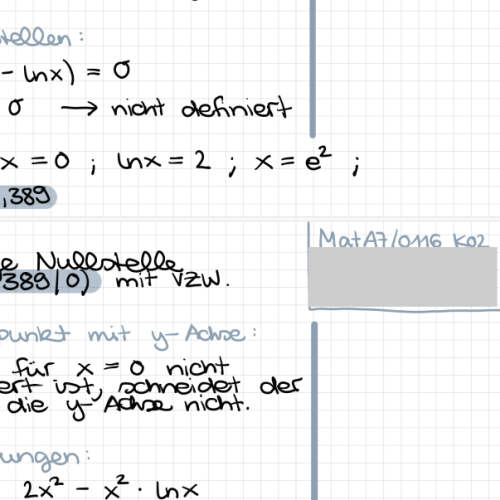 stellen:
- lnx) = 0
0 → nicht definiert
x = 0 ; lnx = 2 ; x = e² ;
,389
MatA7/0116 K02
e Nullstelle
389|0) mit VZW.
punkt mit y-Achse:
für x = 0 nicht
ert ist, schneidet der
die y-Achse nicht.
ungen:
2x² - x² · lnx